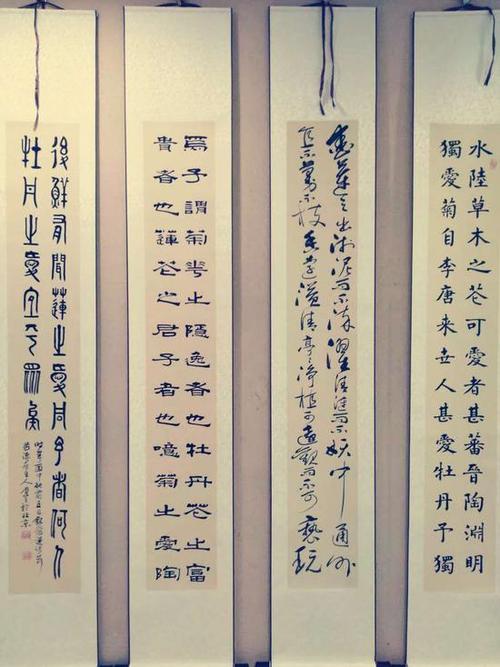 水陸草木之花可愛者甚蕃晉陶淵明
獨愛菊自李唐來世人甚愛牡丹予獨
愛蓮之出淤泥而不染濯清漣而不妖中通外
直不蔓不枝香遠溢清亭亭淨植可遠觀而不可褻玩
焉予謂菊華之隱逸者也牡丹花之富
貴者也蓮花之君子者也噫菊之愛陶
後鮮有聞蓮之愛同予者何人
牡丹之愛宜乎衆矣